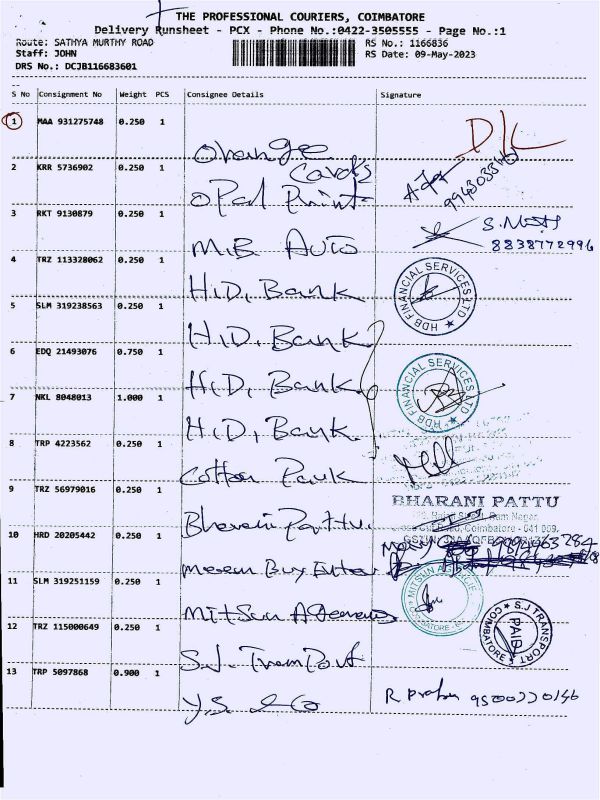 THE PROFESSIONAL COURIERS, COIMBATORE
Delivery Runsheet - PCX - Phone No.:0422-3505555 - Page No.:1
Route: SATHYA MURTHY ROAD RS No.: 1166836
Staff: JOHN RS Date: 09-May-2023
DRS No.: DCJB116683601
S No Consignment No Weight PCS Consignee Details Signature
1 MAA 931275748 0.250 1 Orange Cards
2 KRR 5736902 0.250 1 Opal Print
3 RKT 9130879 0.250 1 M.B. Auto 8838772996
4 TRZ 113328062 0.250 1 H.D. Bank HDB FINANCIAL SERVICES LTD
5 SLM 319238563 0.250 1 H.D. Bank
6 EDQ 21493076 0.750 1 H.D. Bank HDB FINANCIAL SERVICES LTD
7 NKL 8048013 1.000 1 H.D. Bank
8 TRP 4223562 0.250 1 Cotton Park
9 TRZ 56979016 0.250 1 Bharani Pattu BHARANI PATTU
Ram Nagar,
Coimbatore - 641 009.
10 HRD 20205442 0.250 1
11 SLM 319251159 0.250 1 Mitsun Agencies
12 TRZ 115000649 0.250 1 S.J. Transport S.J TRANSPORT PAID COIMBATORE
13 TRP 5097868 0.900 1 Y.S. & Co R Prabu 9500770146